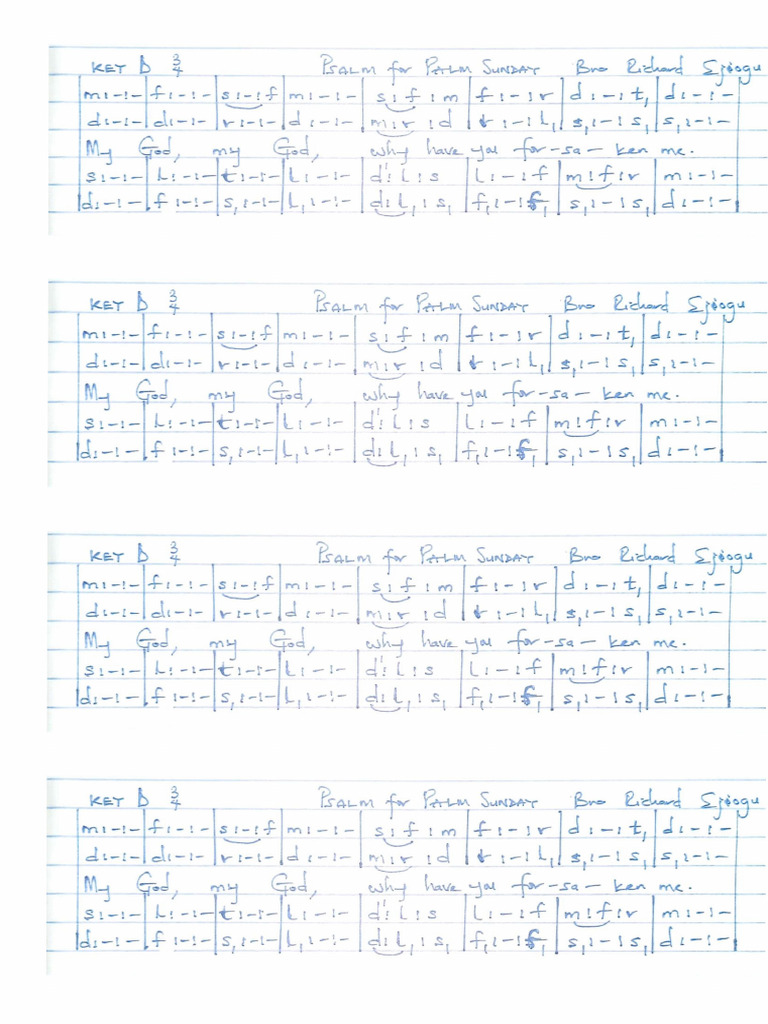 KEY D 3/4 PSALM for PALM SUNDAY Bro Richard Ejiogu
m:-:-|f:-:-|s:-:f|m:-:-|s:f:m|f:-:r|d:-:t,|d:-:-
d:-:-|d:-:-|r:-:-|d:-:-|m:r:d|t:-:l,|s,:-:s,|s,:-:-
My God, my God, why have you for-sa-ken me.
s:-:-|l:-:-|t:-:-|l:-:-|d':l:s|l:-:f|m:f:r|m:-:-
d:-:-|f:-:-|s,:-:-|l,:-:-|d:l,:s,|f,:-:f,|s,:-:s,|d:-:-
KEY D 3/4 PSALM for PALM SUNDAY Bro Richard Ejiogu
m:-:-|f:-:-|s:-:f|m:-:-|s:f:m|f:-:r|d:-:t,|d:-:-
d:-:-|d:-:-|r:-:-|d:-:-|m:r:d|t:-:l,|s,:-:s,|s,:-:-
My God, my God, why have you for-sa-ken me.
s:-:-|l:-:-|t:-:-|l:-:-|d':l:s|l:-:f|m:f:r|m:-:-
d:-:-|f:-:-|s,:-:-|l,:-:-|d:l,:s,|f,:-:f,|s,:-:s,|d:-:-
KEY D 3/4 PSALM for PALM SUNDAY Bro Richard Ejiogu
m:-:-|f:-:-|s:-:f|m:-:-|s:f:m|f:-:r|d:-:t,|d:-:-
d:-:-|d:-:-|r:-:-|d:-:-|m:r:d|t:-:l,|s,:-:s,|s,:-:-
My God, my God, why have you for-sa-ken me.
s:-:-|l:-:-|t:-:-|l:-:-|d':l:s|l:-:f|m:f:r|m:-:-
d:-:-|f:-:-|s,:-:-|l,:-:-|d:l,:s,|f,:-:f,|s,:-:s,|d:-:-
KEY D 3/4 PSALM for PALM SUNDAY Bro Richard Ejiogu
m:-:-|f:-:-|s:-:f|m:-:-|s:f:m|f:-:r|d:-:t,|d:-:-
d:-:-|d:-:-|r:-:-|d:-:-|m:r:d|t:-:l,|s,:-:s,|s,:-:-
My God, my God, why have you for-sa-ken me.
s:-:-|l:-:-|t:-:-|l:-:-|d':l:s|l:-:f|m:f:r|m:-:-
d:-:-|f:-:-|s,:-:-|l,:-:-|d:l,:s,|f,:-:f,|s,:-:s,|d:-:-